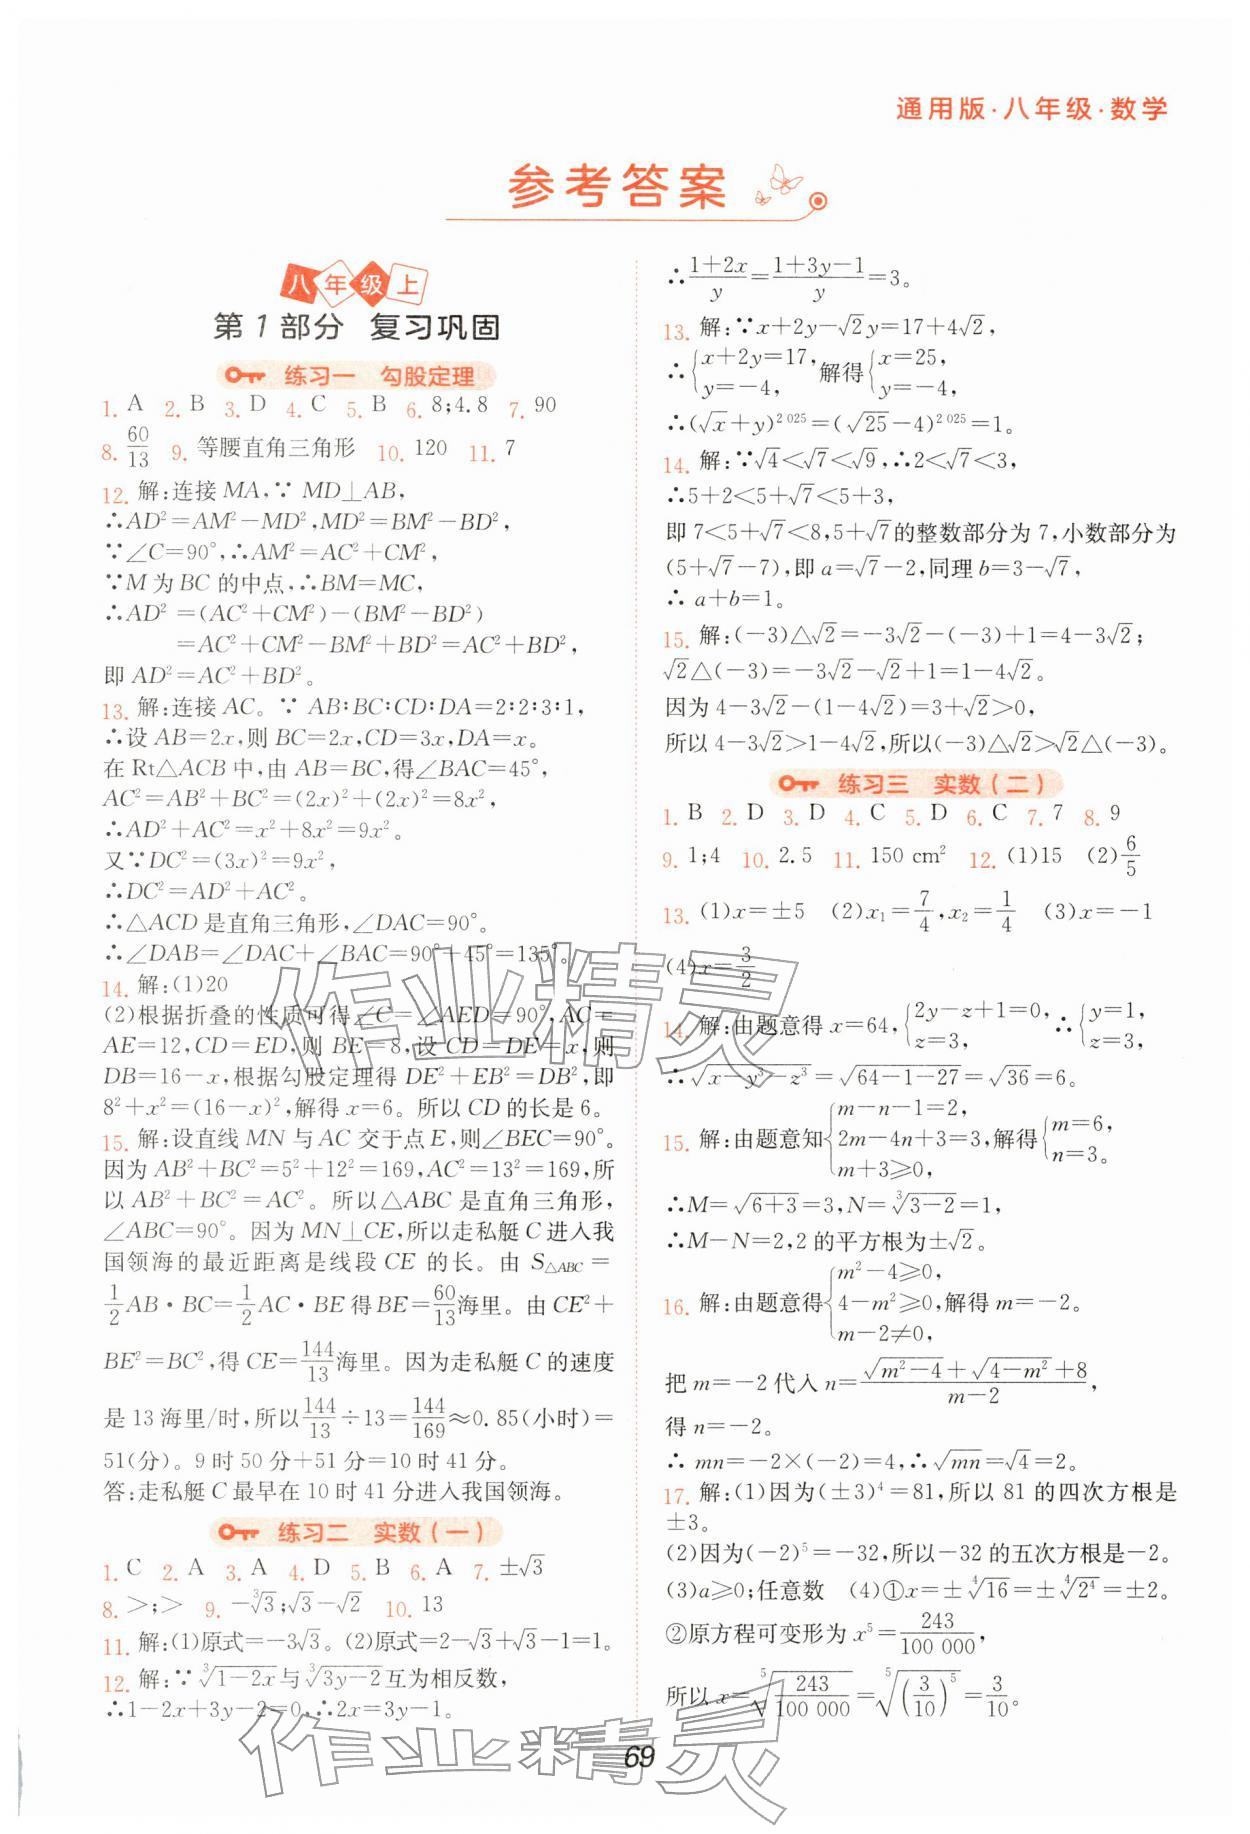 通用版·八年级·数学
参考答案
八年级上
第1部分 复习巩固
练习一 勾股定理
1. A 2. B 3. D 4. C 5. B 6. 8;4.8 7. 90
8. 60/13 9. 等腰直角三角形 10. 120 11. 7
12. 解:连接 MA,∵ MD⊥AB,
∴AD²=AM²-MD²,MD²=BM²-BD²,
∵∠C=90°,∴AM²=AC²+CM²,
∵M 为 BC 的中点,∴BM=MC,
∴AD²=(AC²+CM²)-(BM²-BD²)
=AC²+CM²-BM²+BD²=AC²+BD²,
即 AD²=AC²+BD²。
13. 解:连接 AC。∵ AB∶BC∶CD∶DA=2∶2∶3∶1,
∴设 AB=2x,则 BC=2x,CD=3x,DA=x。
在 Rt△ACB 中,由 AB=BC,得∠BAC=45°,
AC²=AB²+BC²=(2x)²+(2x)²=8x²,
∴AD²+AC²=x²+8x²=9x²。
又∵DC²=(3x)²=9x²,
∴DC²=AD²+AC²。
∴△ACD 是直角三角形,∠DAC=90°。
∴∠DAB=∠DAC+∠BAC=90°+45°=135°。
14. 解:(1)20
(2)根据折叠的性质可得∠C=∠AED=90°,AC=
AE=12,CD=ED,则 BE=8,设 CD=DE=x,则
DB=16-x,根据勾股定理得 DE²+EB²=DB²,即
8²+x²=(16-x)²,解得 x=6。所以 CD 的长是 6。
15. 解:设直线 MN 与 AC 交于点 E,则∠BEC=90°。
因为 AB²+BC²=5²+12²=169,AC²=13²=169,所
以 AB²+BC²=AC²。所以△ABC 是直角三角形,
∠ABC=90°。因为 MN⊥CE,所以走私艇 C 进入我
国领海的最近距离是线段 CE 的长。由 S△ABC=
1/2 AB·BC=1/2 AC·BE 得 BE=60/13 海里。由 CE²+
BE²=BC²,得 CE=144/13 海里。因为走私艇 C 的速度
是 13 海里/时,所以 144/13÷13=144/169≈0.85(小时)=
51(分)。9 时 50 分+51 分=10 时 41 分。
答:走私艇 C 最早在 10 时 41 分进入我国领海。
练习二 实数(一)
1. C 2. A 3. A 4. D 5. B 6. A 7. ±√3
8. >;> 9. -∛3;√3-√2 10. 13
11. 解:(1)原式=-3√3。(2)原式=2-√3+√3-1=1。
12. 解:∵∛(1-2x)与∛(3y-2)互为相反数,
∴1-2x+3y-2=0,∴2x=3y-1。
∴(1+2x)/y=(1+3y-1)/y=3。
13. 解:∵x+2y-√2y=17+4√2,
∴{x+2y=17, y=-4, 解得{x=25, y=-4,
∴(√x+y)²⁰²⁵=(√25-4)²⁰²⁵=1。
14. 解:∵√4<√7<√9,∴2<√7<3,
∴5+2<5+√7<5+3,
即 7<5+√7<8,5+√7的整数部分为 7,小数部分为
(5+√7-7),即 a=√7-2,同理 b=3-√7,
∴ a+b=1。
15. 解:(-3)△√2=-3√2-(-3)+1=4-3√2;
√2△(-3)=-3√2-√2+1=1-4√2。
因为 4-3√2-(1-4√2)=3+√2>0,
所以 4-3√2>1-4√2,所以(-3)△√2>√2△(-3)。
练习三 实数(二)
1. B 2. D 3. D 4. C 5. D 6. C 7. 7 8. 9
9. 1;4 10. 2.5 11. 150 cm² 12. (1)15 (2)6/5
13. (1)x=±5 (2)x₁=7/4,x₂=1/4 (3)x=-1
(4)x=3/2
14. 解:由题意得 x=64,{2y-z+1=0, z=3, ∴{y=1, z=3,
∴√(x-y³-z³)=√(64-1-27)=√36=6。
15. 解:由题意知{m-n-1=2, 2m-4n+3=3, m+3≥0, 解得{m=6, n=3。
∴M=√(6+3)=3,N=∛(3-2)=1,
∴M-N=2,2 的平方根为±√2。
16. 解:由题意得{m²-4≥0, 4-m²≥0, m-2≠0, 解得 m=-2。
把 m=-2 代入 n=(√(m²-4)+√(4-m²)+8)/(m-2),
得 n=-2。
∴ mn=-2×(-2)=4,∴√mn=√4=2。
17. 解:(1)因为(±3)⁴=81,所以 81 的四次方根是
±3。
(2)因为(-2)⁵=-32,所以-32 的五次方根是-2。
(3)a≥0;任意数 (4)①x=±∜16=±∜2⁴=±2。
②原方程可变形为 x⁵=243/100 000,
所以 x=⁵√(243/100 000)=⁵√(3/10)⁵=3/10。
作业精灵
作业精灵
69